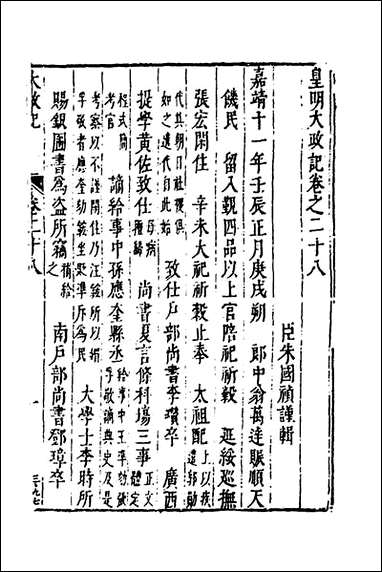 皇明大政記卷之二十八
臣朱國禎謹輯
嘉靖十一年壬辰正月庚戌朔　郎中翁萬達賑順天
饑民　留入覲四品以上官陪祀祈穀　延綏巡撫
張宏閑住　辛未大祀祈穀止奉　太祖配上以疾遣郭勛
代其朝日社稷俱如之遣代自此始　致仕戶部尚書李瓚卒　廣西
提學黃佐致仕　尚書夏言條科場三事
考官　謫給事中孫應奎縣丞
考察以不謹閑住　大學士李時所
賜銀圖書為盜所竊補給之　南戶部尚書鄧璋卒
大政記
卷二十八
一